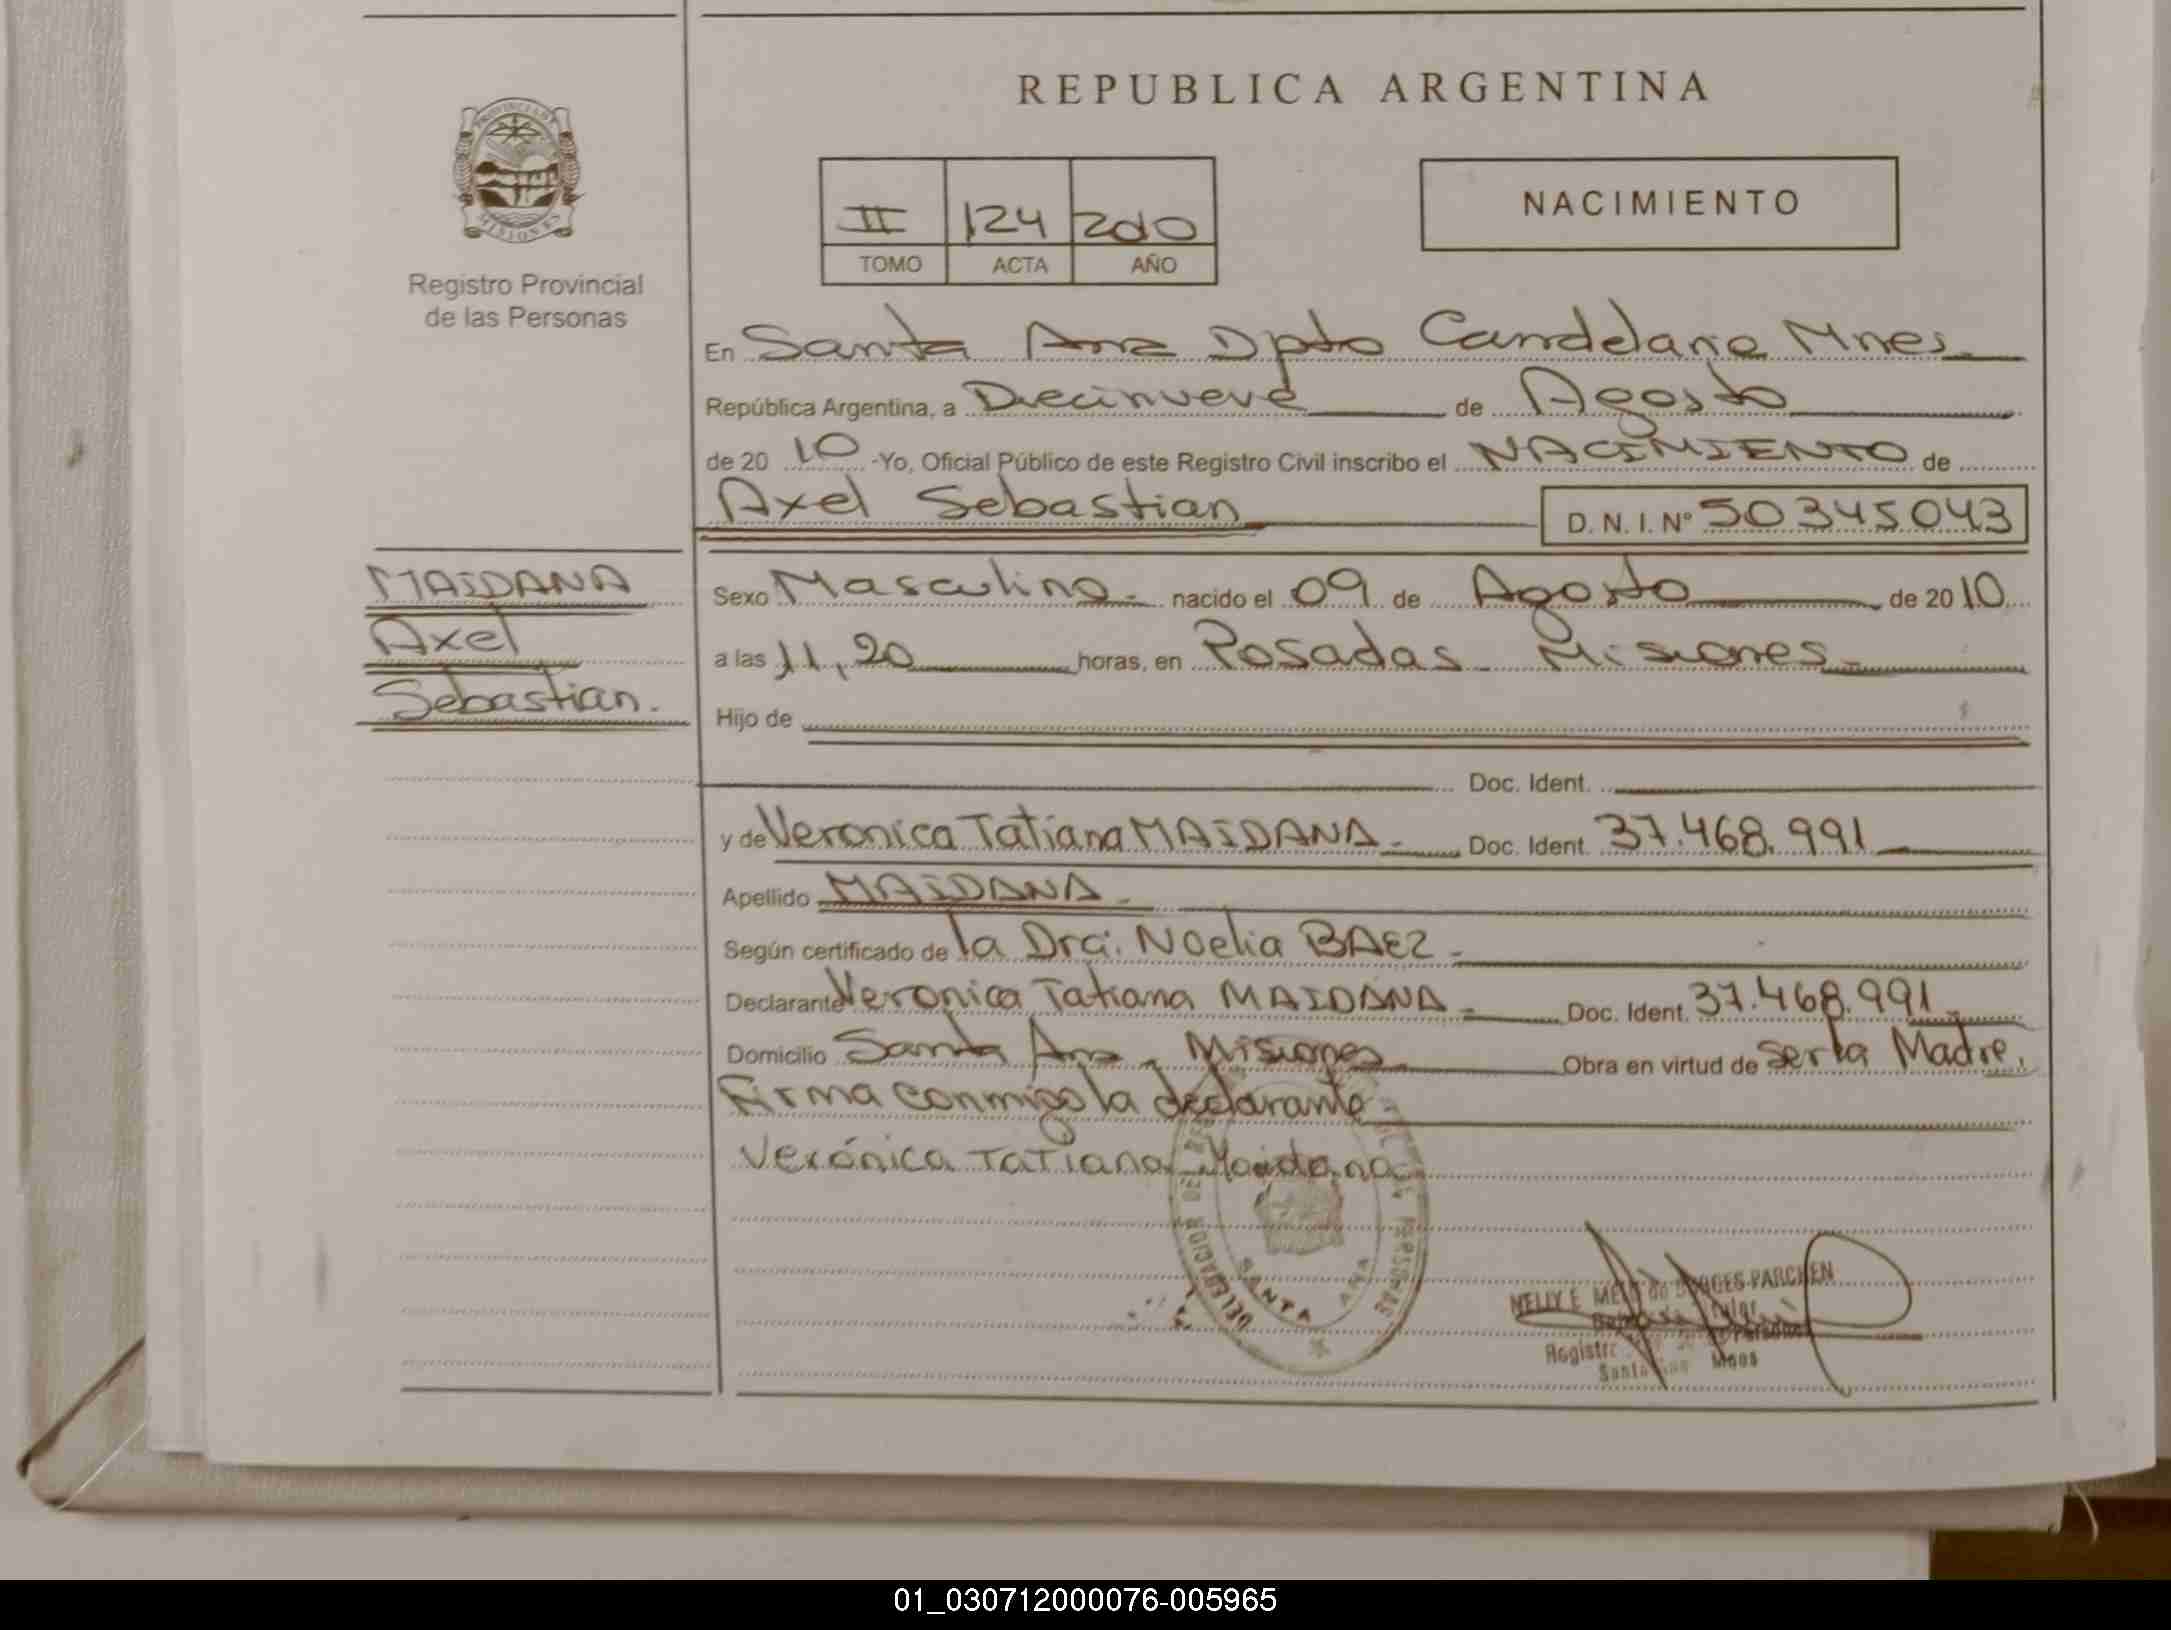 REPUBLICA ARGENTINA
PROVINCIA DE
MISIONES
Registro Provincial
de las Personas
II 124 2010
TOMO ACTA AÑO
NACIMIENTO
En Santa Ana Dpto Candelaria Mnes.
República Argentina, a Diecinueve de Agosto
de 20 10 -Yo, Oficial Público de este Registro Civil inscribo el NACIMIENTO de
Axel Sebastian D. N. I. Nº 50345043
MAIDANA
Axel
Sebastian.
Sexo Masculino.- nacido el 09 de Agosto de 20 10
a las 11,20 horas, en Posadas - Misiones-
Hijo de
Doc. Ident.
y de Veronica Tatiana MAIDANA.- Doc. Ident. 37.468.991
Apellido MAIDANA.-
Según certificado de la Dra. Noelia BAEZ.-
Declarante Veronica Tatiana MAIDANA.- Doc. Ident. 37.468.991.-
Domicilio Santa Ana - Misiones- Obra en virtud de ser la Madre.
Firma conmigo la declarante-
Verónica Tatiana Maidana
DELEGACION DEL DE LAS PERSONAS
SANTA ANA
NELLY E. de BORGES PARCHEN
Titular
Registro
Santa Ana Mnes
01_030712000076-005965